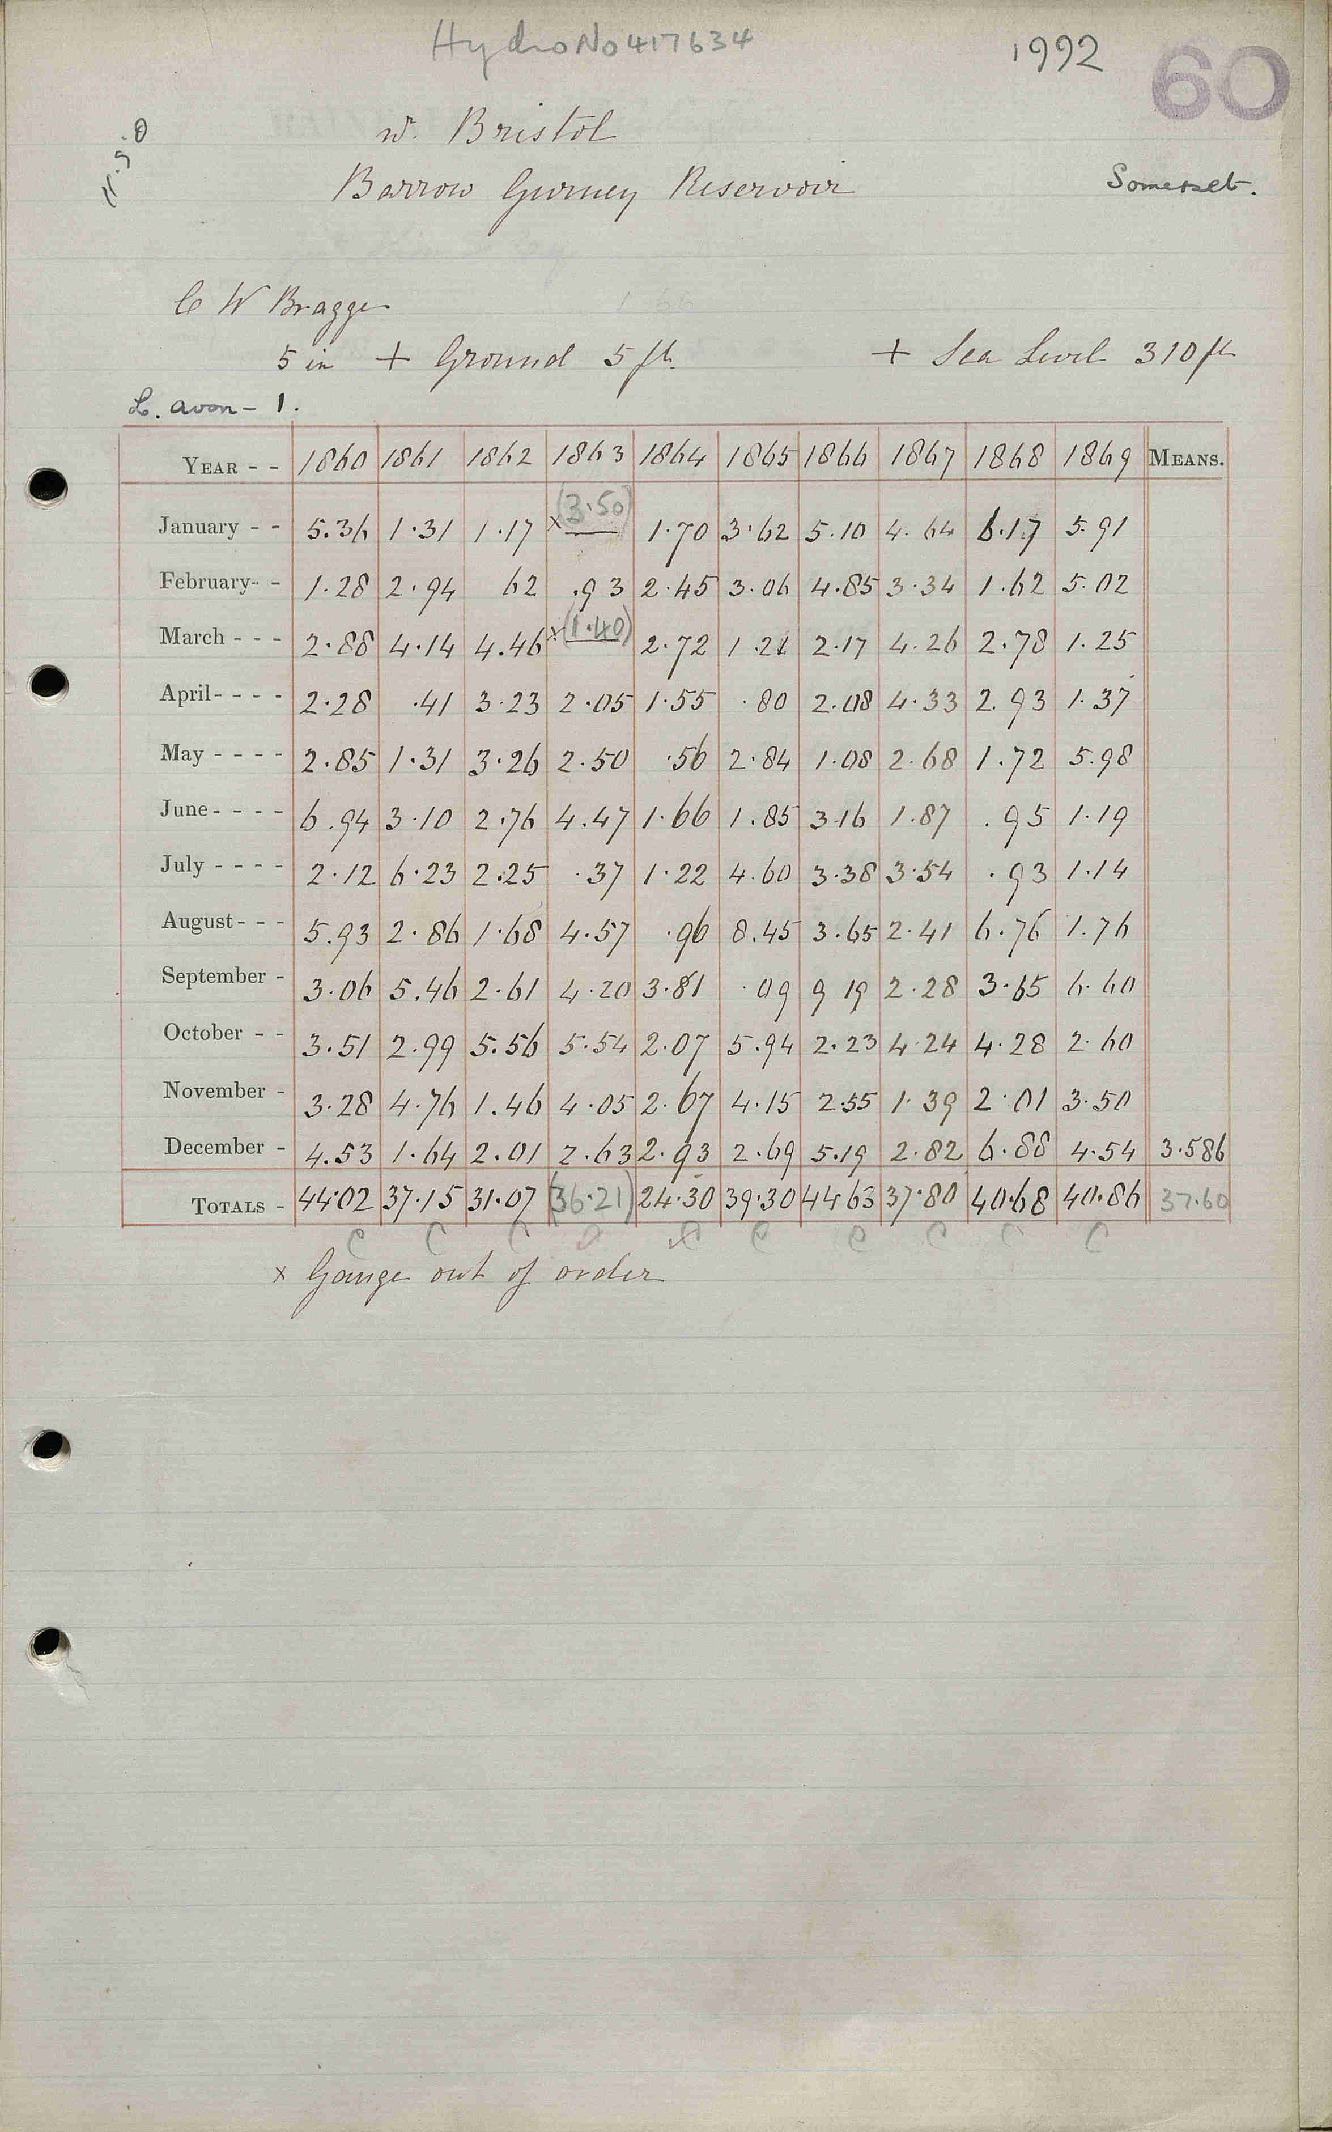 Hydro No 417634
1992
60
11.9.0
W. Bristol
Barrow Gurney Reservoir
Somerset.
C W Bragge
5 in + Ground 5 ft. + Sea Level 310 ft
L. Avon - 1.
YEAR - - 1860 1861 1862 1863 1864 1865 1866 1867 1868 1869 MEANS.
January - - 5.36 1.31 1.17 x (3.50) 1.70 3.62 5.10 4.64 6.17 5.91
February- - 1.28 2.94 62 .93 2.45 3.06 4.85 3.34 1.62 5.02
March - - - 2.88 4.14 4.46 x (1.40) 2.72 1.21 2.17 4.26 2.78 1.25
April- - - - 2.28 .41 3.23 2.05 1.55 .80 2.08 4.33 2.93 1.37
May - - - - 2.85 1.31 3.26 2.50 .56 2.84 1.08 2.68 1.72 5.98
June- - - - 6.94 3.10 2.76 4.47 1.66 1.85 3.16 1.87 .95 1.19
July - - - - 2.12 6.23 2.25 .37 1.22 4.60 3.38 3.54 .93 1.14
August- - - 5.93 2.86 1.68 4.57 .96 8.45 3.65 2.41 6.76 1.76
September - 3.06 5.46 2.61 4.20 3.81 .09 9 19 2.28 3.65 6.60
October - - 3.51 2.99 5.56 5.54 2.07 5.94 2.23 4.24 4.28 2.60
November - 3.28 4.76 1.46 4.05 2.67 4.15 2.55 1.39 2.01 3.50
December - 4.53 1.64 2.01 2.63 2.93 2.69 5.19 2.82 6.88 4.54 3.586
TOTALS - 44.02 37.15 31.07 (36.21) 24.30 39.30 44 63 37.80 40.68 40.86 37.60
x Gauge out of order